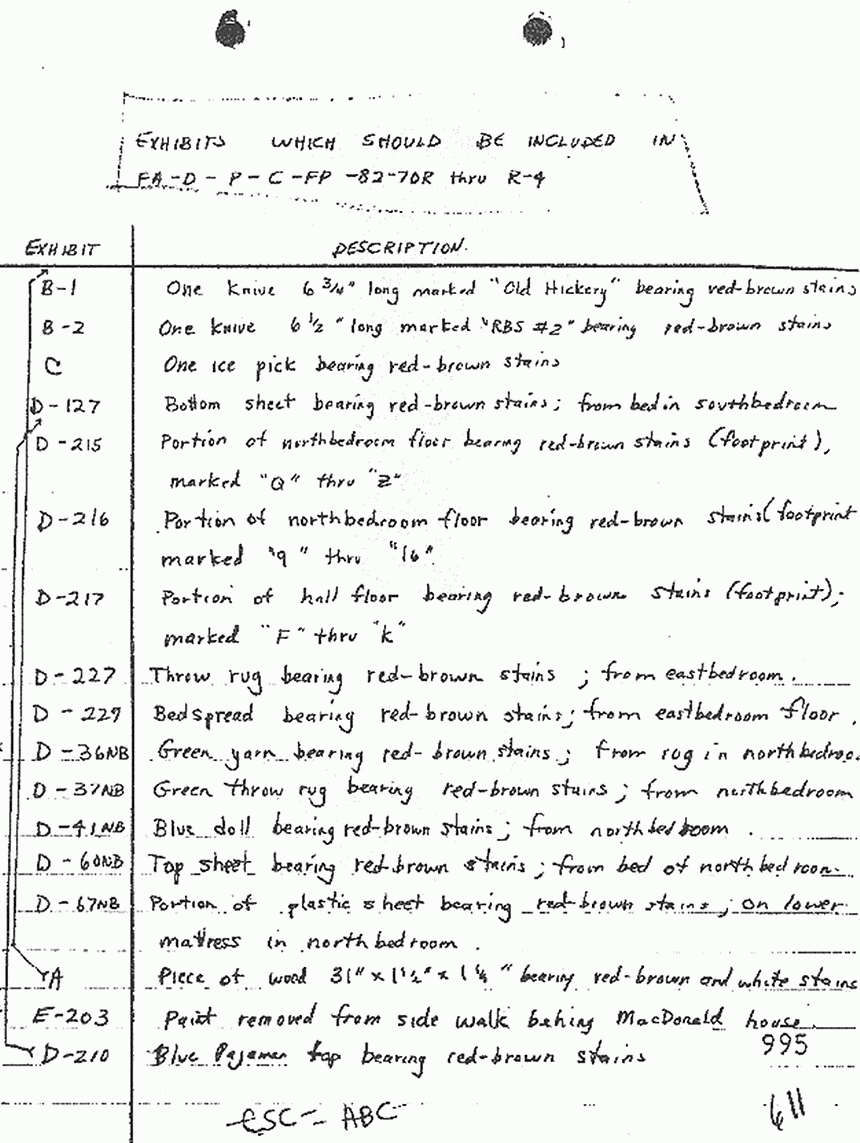 EXHIBITS WHICH SHOULD BE INCLUDED IN
FA-D-P-C-FP-82-70R thru R-4
EXHIBIT DESCRIPTION.
B-1 One Knive 6 3/4" long marked "Old Hickery" bearing red-brown stains
B-2 One knive 6 1/2" long marked "RBS #2" bearing red-brown stains
C One ice pick bearing red-brown stains
D-127 Bottom sheet bearing red-brown stains; from bed in southbedroom
D-215 Portion of northbedroom floor bearing red-brown stains (footprint),
marked "Q" thru "Z"
D-216 Portion of northbedroom floor bearing red-brown stains (footprint
marked "9" thru "16".
D-217 Portion of hall floor bearing red-brown stains (footprint);
marked "F" thru "K"
D-227 Throw rug bearing red-brown stains; from eastbedroom.
D-229 Bedspread bearing red-brown stains; from eastbedroom floor.
D-36NB Green yarn bearing red-brown stains; from rug in northbedroo
D-37NB Green throw rug bearing red-brown stains; from northbedroom
D-41NB Blue doll bearing red-brown stains; from northbedroom.
D-60NB Top sheet bearing red-brown stains; from bed of northbedroom.
D-67NB Portion of plastic sheet bearing red-brown stains; on lower
mattress in northbedroom.
A Piece of wood 31" x 1 1/2" x 1 1/4" bearing red-brown and white stains
E-203 Paint removed from side walk behing MacDonald house.
995
D-210 Blue Pajamar top bearing red-brown stains
CSC - ABC
611